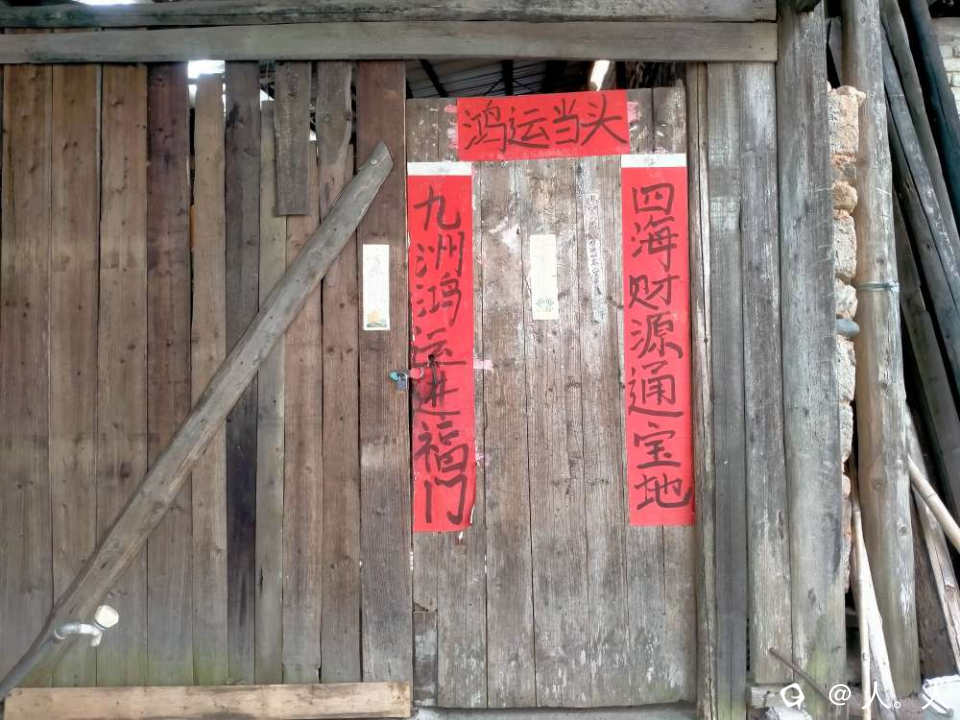 鸿运当头
四海财源通宝地
九洲鸿运进福门
@人。义